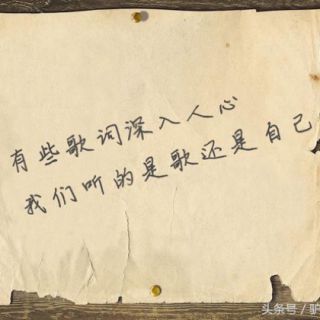 有些歌词深入人心
我们听的是歌还是自己
头条号 / 驴